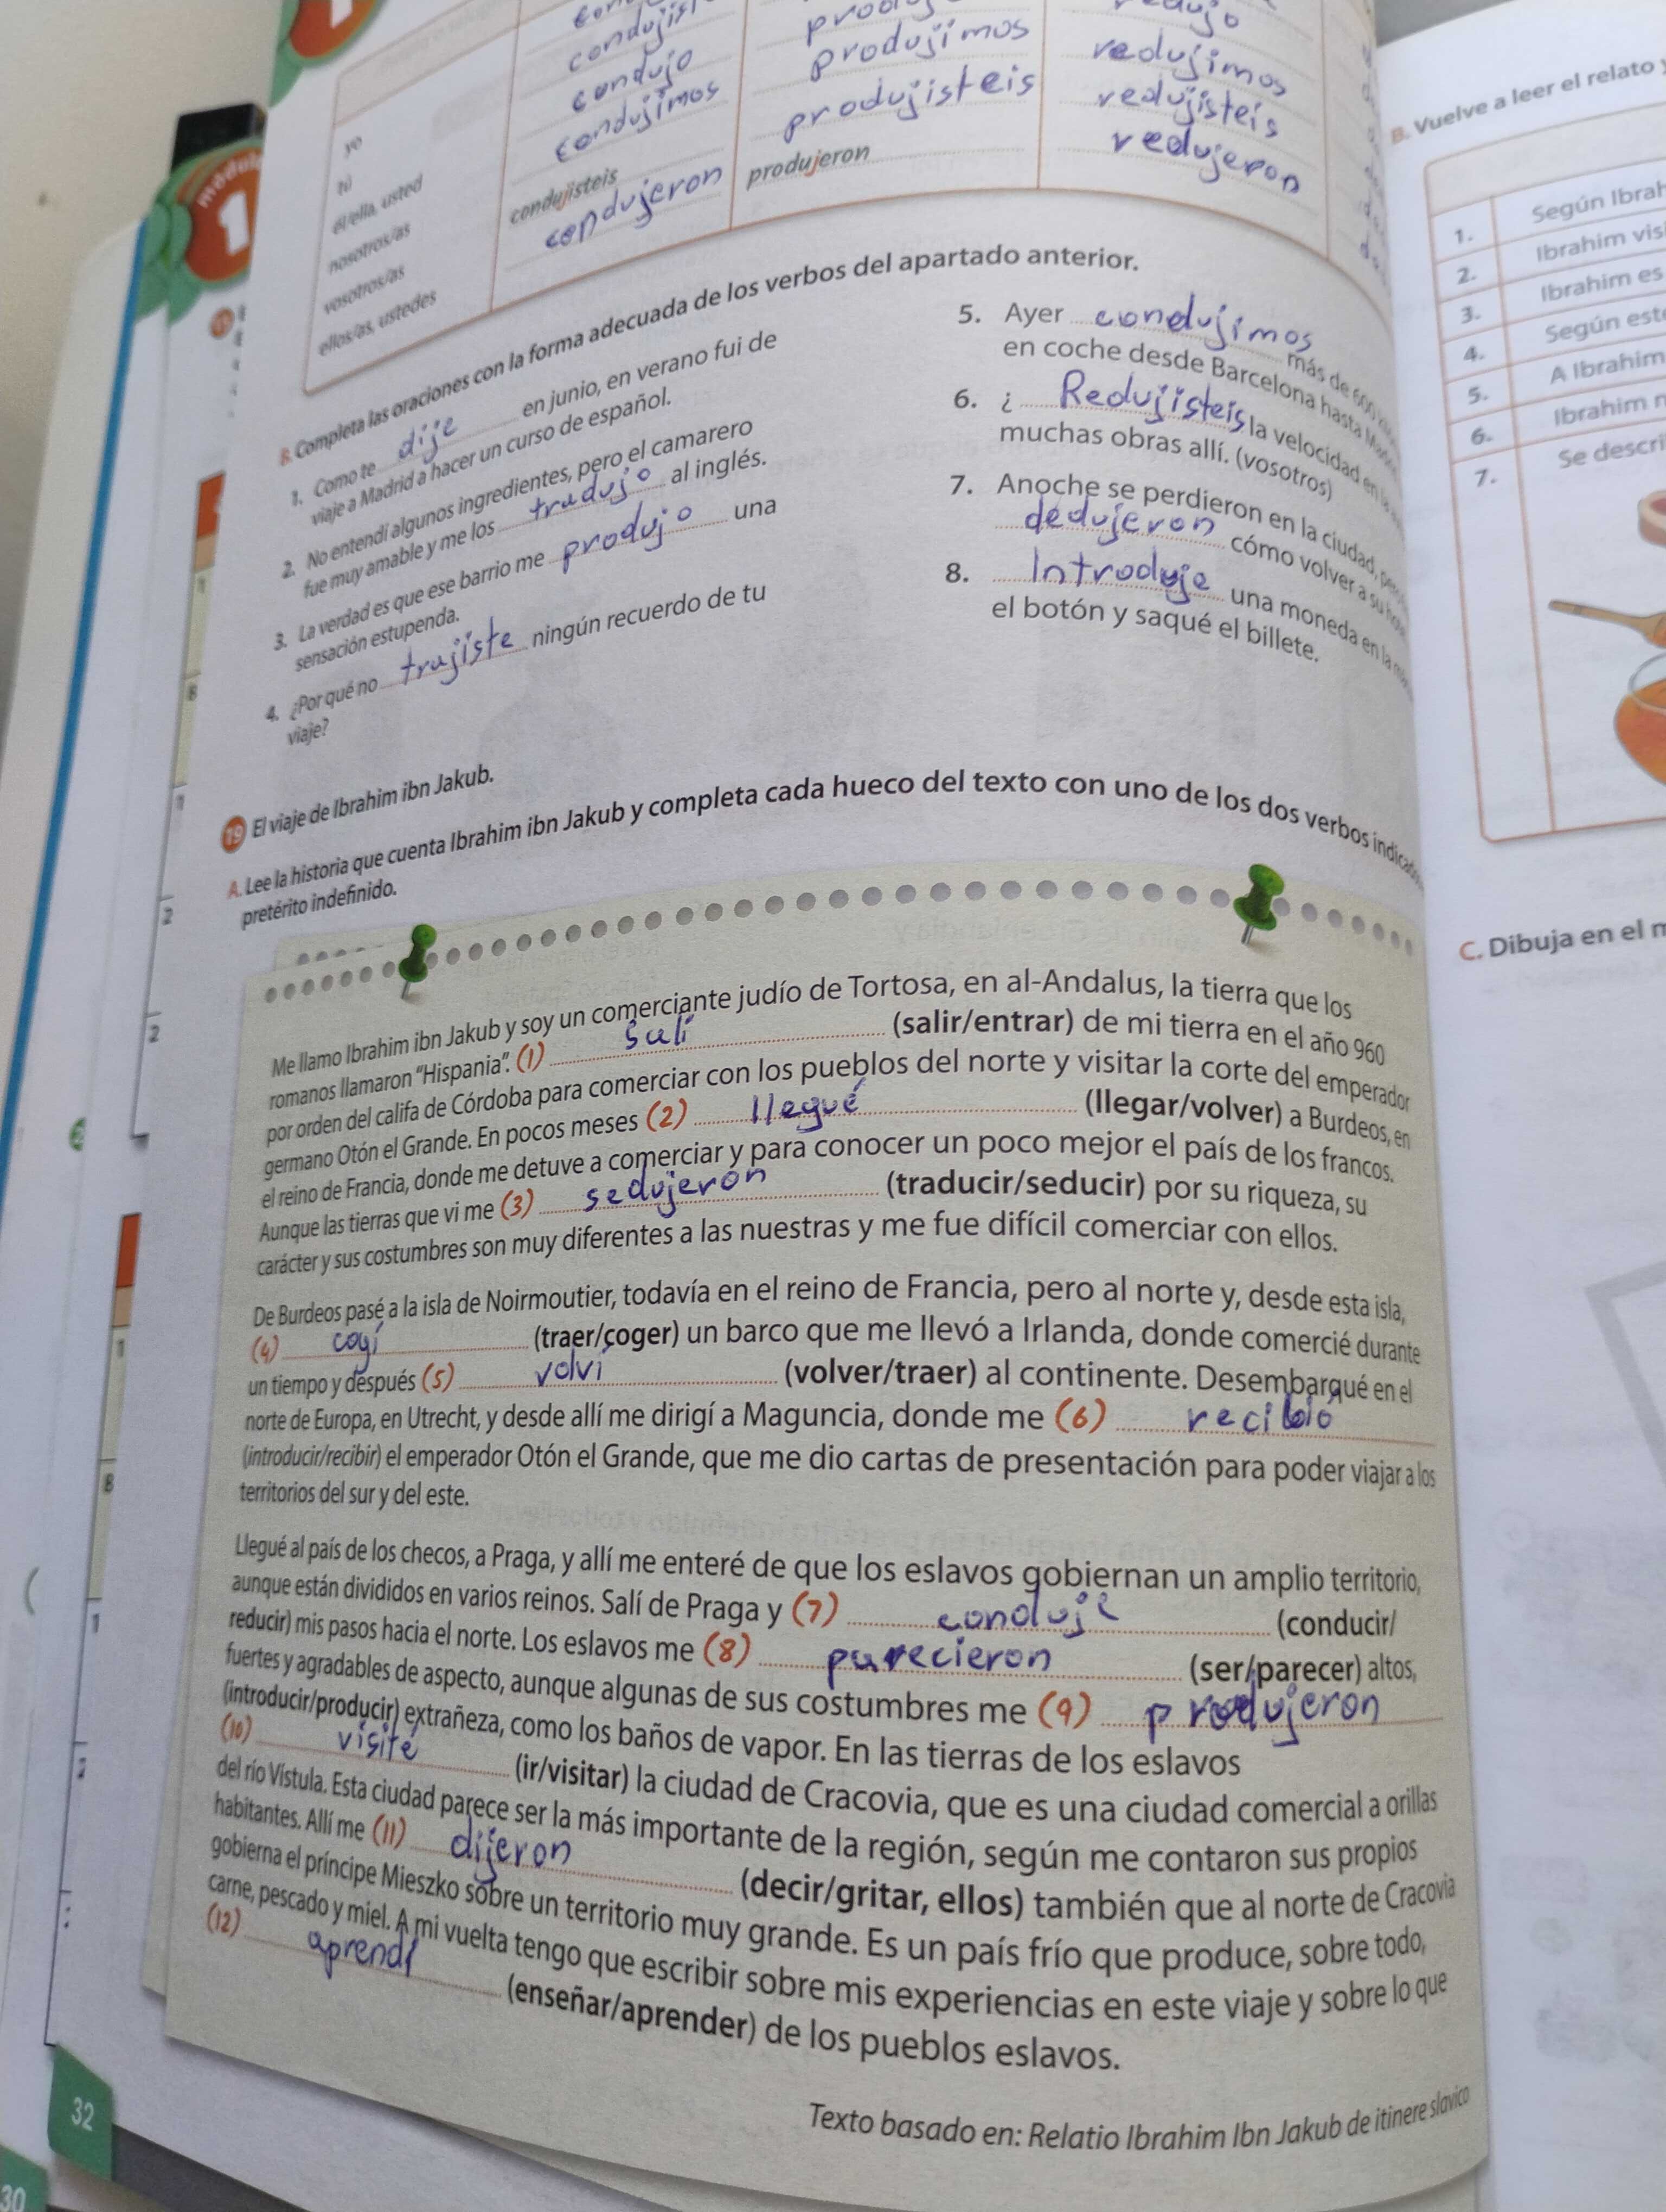 condujo
condujimos
produjimos
produjisteis
redujimos
redujisteis
redujeron
yo
tú
él/ella, usted
nosotros/as
vosotros/as
ellos/as, ustedes
condujisteis
condujeron
produjeron
módulo
1
B. Completa las oraciones con la forma adecuada de los verbos del apartado anterior.
1. Como te dije en junio, en verano fui de
viaje a Madrid a hacer un curso de español.
2. No entendí algunos ingredientes, pero el camarero
fue muy amable y me los tradujo al inglés.
3. La verdad es que ese barrio me produjo una
sensación estupenda.
4. ¿Por qué no trajiste ningún recuerdo de tu
viaje?
5. Ayer condujimos más de 600
en coche desde Barcelona hasta
6. ¿ Redujisteis la velocidad en
muchas obras allí. (vosotros)
7. Anoche se perdieron en la ciudad,
dedujeron cómo volver a su
8. Introduje una moneda en la
el botón y saqué el billete.
19 El viaje de Ibrahim ibn Jakub.
A. Lee la historia que cuenta Ibrahim ibn Jakub y completa cada hueco del texto con uno de los dos verbos
pretérito indefinido.
Me llamo Ibrahim ibn Jakub y soy un comerciante judío de Tortosa, en al-Andalus, la tierra que los
romanos llamaron "Hispania". (1) Salí (salir/entrar) de mi tierra en el año 960
por orden del califa de Córdoba para comerciar con los pueblos del norte y visitar la corte del emperador
germano Otón el Grande. En pocos meses (2) llegué (llegar/volver) a Burdeos, en
el reino de Francia, donde me detuve a comerciar y para conocer un poco mejor el país de los francos.
Aunque las tierras que vi me (3) sedujeron (traducir/seducir) por su riqueza, su
carácter y sus costumbres son muy diferentes a las nuestras y me fue difícil comerciar con ellos.
De Burdeos pasé a la isla de Noirmoutier, todavía en el reino de Francia, pero al norte y, desde esta isla,
(4) cogí (traer/coger) un barco que me llevó a Irlanda, donde comercié durante
un tiempo y después (5) volví (volver/traer) al continente. Desembarqué en el
norte de Europa, en Utrecht, y desde allí me dirigí a Maguncia, donde me (6) recibió
(introducir/recibir) el emperador Otón el Grande, que me dio cartas de presentación para poder viajar a los
territorios del sur y del este.
Llegué al país de los checos, a Praga, y allí me enteré de que los eslavos gobiernan un amplio territorio,
aunque están divididos en varios reinos. Salí de Praga y (7) conduje (conducir/
reducir) mis pasos hacia el norte. Los eslavos me (8) parecieron (ser/parecer) altos,
fuertes y agradables de aspecto, aunque algunas de sus costumbres me (9) produjeron
(introducir/producir) extrañeza, como los baños de vapor. En las tierras de los eslavos
(10) visité (ir/visitar) la ciudad de Cracovia, que es una ciudad comercial a orillas
del río Vístula. Esta ciudad parece ser la más importante de la región, según me contaron sus propios
habitantes. Allí me (11) dijeron (decir/gritar, ellos) también que al norte de Cracovia
gobierna el príncipe Mieszko sobre un territorio muy grande. Es un país frío que produce, sobre todo,
carne, pescado y miel. A mi vuelta tengo que escribir sobre mis experiencias en este viaje y sobre lo que
(12) aprendí (enseñar/aprender) de los pueblos eslavos.
Texto basado en: Relatio Ibrahim Ibn Jakub de itinere slavico
32
30
B. Vuelve a leer el relato
1. Según
2. Ibrahim
3. Ibrahim es
4. Según
5. A Ibrahim
6. Ibrahim
7. Se
C. Dibuja en el